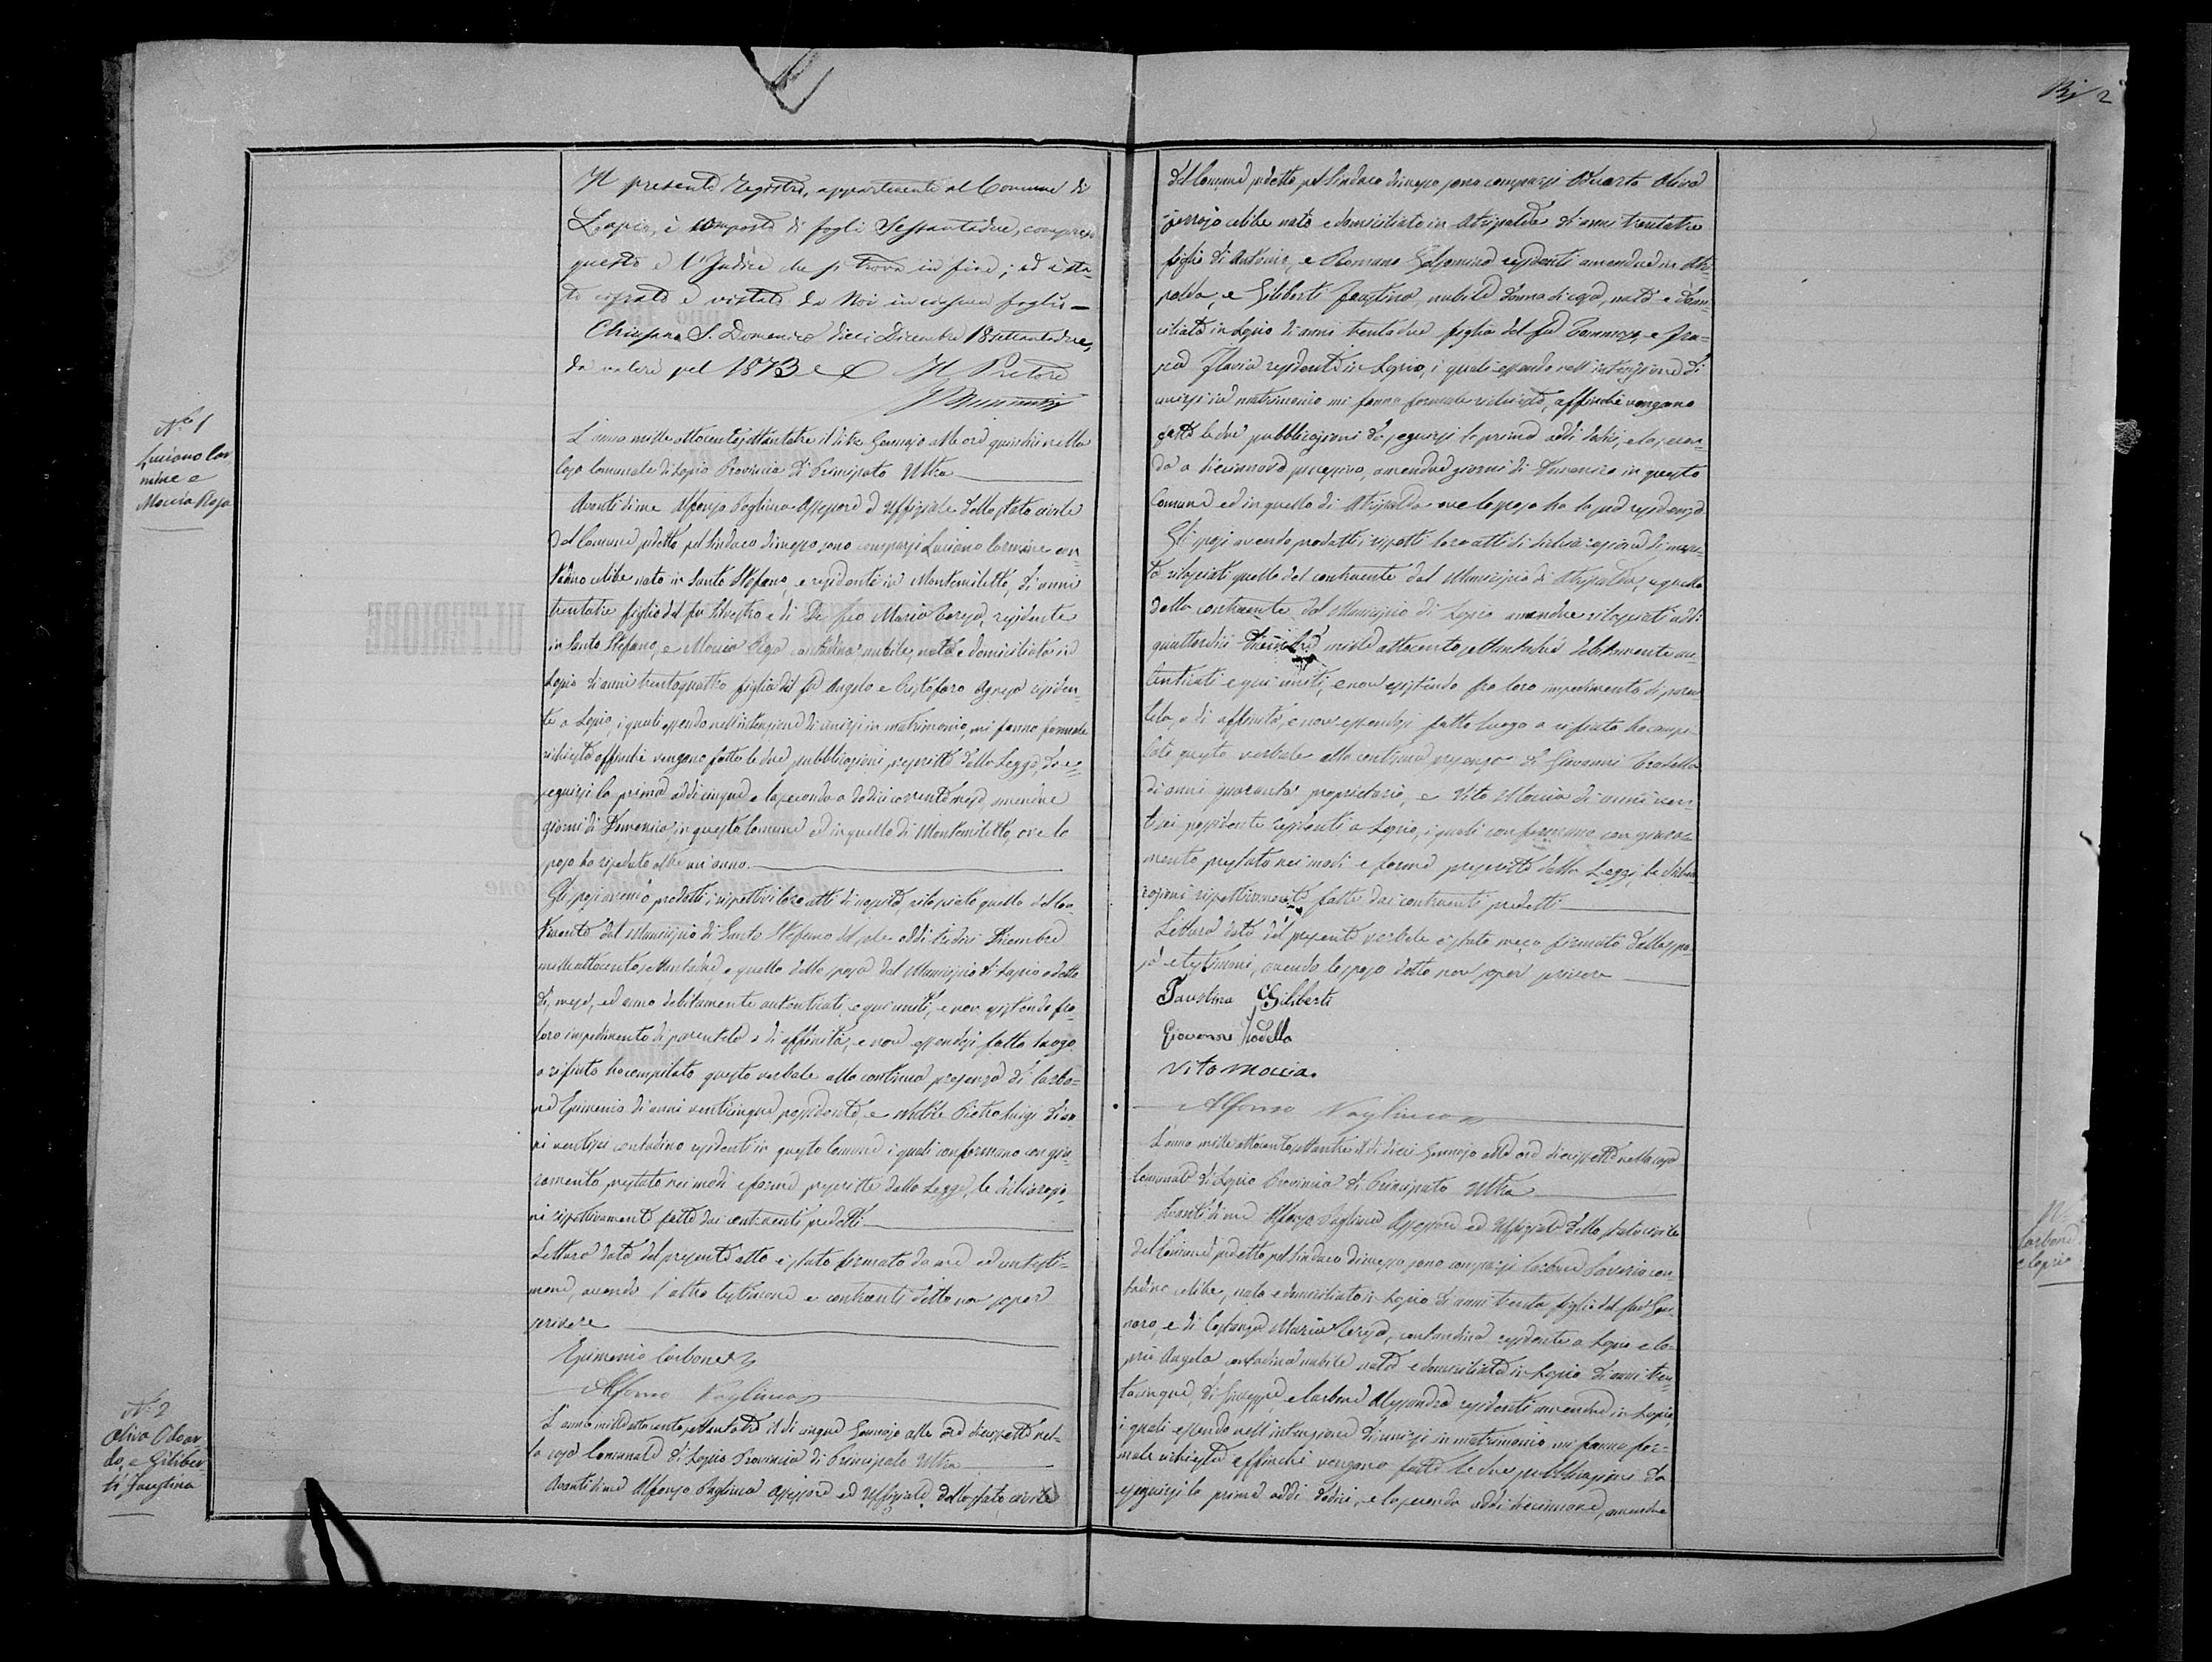 2
Il presente Registro, appartenente al Comune di
Lapio, è composto di fogli Sessantadue, compreso
questo e l'Indice che si trova in fine; ed è sta-
to cifrato e vistato da Noi in ciascun foglio —
Chiusano S. Domenico dieci Dicembre 18settantadue,
da valere pel 1873 Il Pretore
N.o 1
Luciano Car
mine e
Moccia Rosa
L'anno mille ottocento settantatre il dì tre Gennajo alle ore quindici nella
Casa Comunale di Lapio Provincia di Principato Ultra
Avanti di me Alfonso Vagliuca Assessore ed Uffiziale dello stato civile
del Comune predetto pel Sindaco dimesso sono comparsi Luciano Carmine con-
tadino celibe nato in Santo Stefano, e residente in Montemiletto, di anni
trentatre figlio del fu Silvestro e di De Feo Maria Teresa, residente
in Santo Stefano, e Moccia Rosa contadina nubile, nata e domiciliata in
Lapio di anni trentaquattro figlia del fu Angelo e Cristofaro Agnesa residen-
te a Lapio, i quali essendo nell'intenzione di unirsi in matrimonio, mi fanno formale
richiesta affinchè vengano fatte le due pubblicazioni prescritte dalla Legge, da e-
seguirsi la prima addì cinque e la seconda a dodici corrente mese, amendue
giorni di Domenica, in questo Comune ed in quello di Montemiletto, ove lo
sposo ha riseduto oltre un'anno.
Gli sposi avendo prodotti i rispettivi loro atti di nascita, rilasciato quello dello
sposo dal Municipio di Santo Stefano del Sole addì tredici Dicembre
mille ottocento settantadue e quello della sposa dal Municipio di Lapio a detto
dì, mese, ed anno debitamente autenticati, e qui uniti, e non esistendo fra
loro impedimento di parentela o di affinità, e non essendosi fatto luogo
a rifiuto ho compilato questo verbale alla continua presenza di Carbo=
ne Epimenio di anni venticinque possidente, e Pietro Luigi di an-
ni ventisei contadino residenti in questo Comune i quali confermano con giu-
ramento prestato nei modi e forme prescritte dalla Legge, le dichiarazio-
ni rispettivamente fatte dai contraenti predetti
Lettura data del presente atto è stato firmato da me ed un testi-
mone, avendo l'altro testimone e contraenti detto non saper
scrivere
Epimenio Carbone
Alfonso Vagliuca
N.o 2
Oliva Odoar
do, e Giliber-
ti Faustina
L'anno mille ottocento settantatre il dì cinque Gennajo alle ore diciassette nel-
la casa Comunale di Lapio Provincia di Principato Ultra
Avanti di me Alfonso Vagliuca Assessore ed Uffiziale dello stato civile
del Comune predetto pel Sindaco dimesso sono comparsi Oduardo Oliva
celibe nato e domiciliato in Atripalda di anni trentatre
figlio di Antonio, e Romano Gelsomina residenti amendue in Atri-
palda, e Giliberti Faustina nubile donna di casa, nata e domi-
ciliata in Lapio di anni trentadue figlia del fu Tommaso, e
Flavia residente in Lapio, i quali essendo nell'intenzione di
unirsi in matrimonio mi fanno formale richiesta, affinchè vengano
fatte le due pubblicazioni da eseguirsi la prima addì dodici, e la secon-
da a diciannove prossimo, amendue giorni di Domenica in questo
Comune ed in quello di Atripalda ove lo sposo ha la sua residenza
Gli sposi avendo prodotti i rispetti loro atti di di nasci-
ta rilasciati quello del contraente dal Municipio di Atripalda, e quello
della contraente dal Municipio di Lapio amendue rilasciati addì
quattordici Dicembre mille ottocento settantadue debitamente au-
tenticati e qui uniti, e non esistendo fra loro impedimento di paren-
tela, o di affinità, e non essendosi fatto luogo a rifiuto ho compi-
lato questo verbale alla continua presenza di Giovanni Trodella
di anni quaranta proprietario, e Vito Moccia di anni ven-
tisei possidente residenti a Lapio, i quali confermano con giura-
mento prestato nei modi e forme prescritte dalla Legge, le dichia-
razioni rispettivamente fatte dai contraenti predetti
Lettura data del presente verbale è stato meco firmato dalla spo-
sa e testimoni, avendo lo sposo detto non saper scrivere
Faustina Giliberti
Giovanni Trodella
Vito Moccia.
Alfonso Vagliuca
L'anno mille ottocento settantatre il dì dieci Gennajo alle ore diciassette nella casa
Comunale di Lapio Provincia di Principato Ultra
Avanti di me Alfonso Vagliuca Assessore ed Uffiziale dello stato civile
del Comune predetto pel Sindaco dimesso sono comparsi Carbone Saverio con-
tadino celibe, nato e domiciliato in Lapio di anni trenta figlio del fu Gen-
naro, e di Costanza Maria Teresa, contadina residente a Lapio e Ca-
prio Angela contadina nubile nata e domiciliata in Lapio di anni tren-
tacinque, di Giuseppe, e Carbone Alessandra residenti amendue in Lapio,
i quali essendo nell'intenzione di unirsi in matrimonio mi fanno for-
male richiesta affinchè vengano fatte le due pubblicazioni da
eseguirsi la prima addì dodici, e la seconda addì diciannove, amendue
Carbone
e Caprio